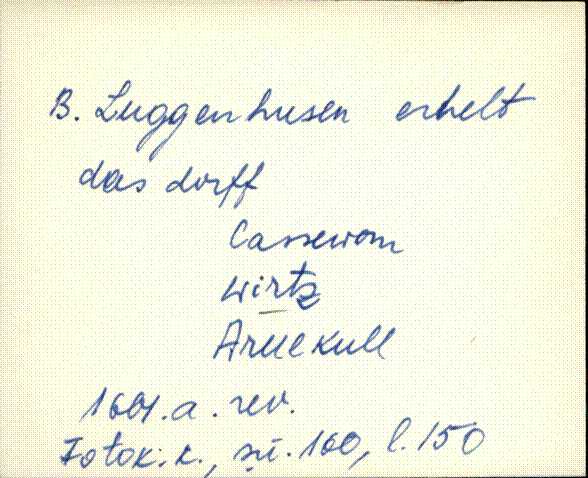 B. Luggenhusen erhelt
das dorff
Cassewom
Wirtz
Aruekull
1601.a. rev.
Fotok.k., sü. 160, l. 150